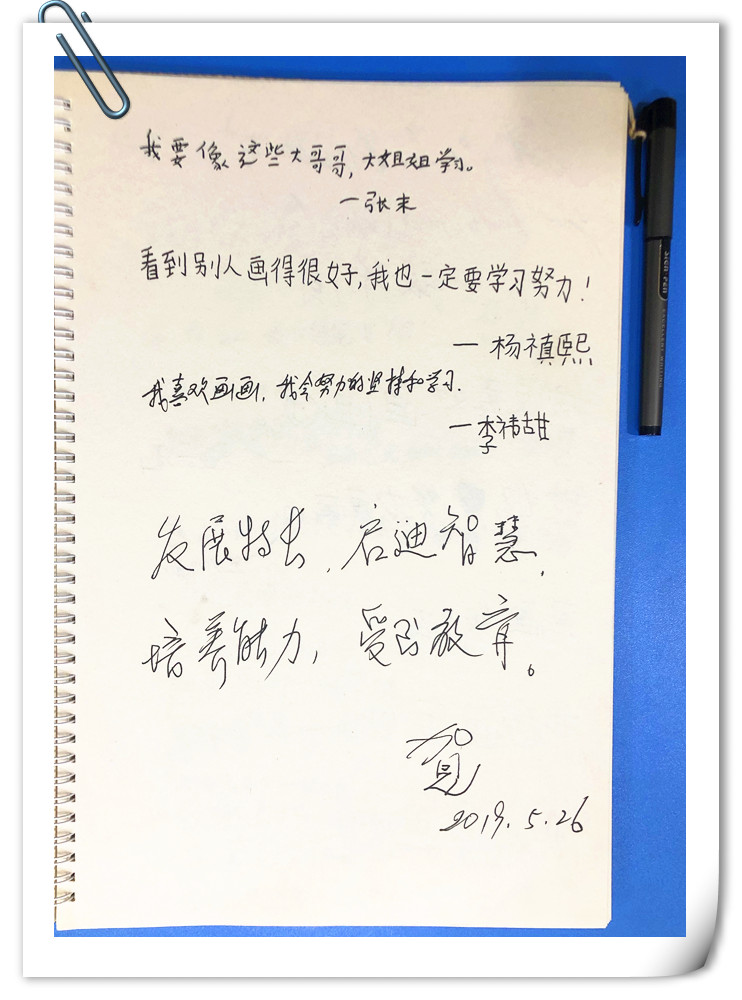 我要像这些大哥哥,大姐姐学习。
一张末
看到别人画得很好,我也一定要学习努力!
一 杨禛熙
我喜欢画画,我会努力的坚持和学习.
一李祎甜
发展特长,启迪智慧,
培养能力,受到教育。
贺
2019.5.26
SIGN PEN